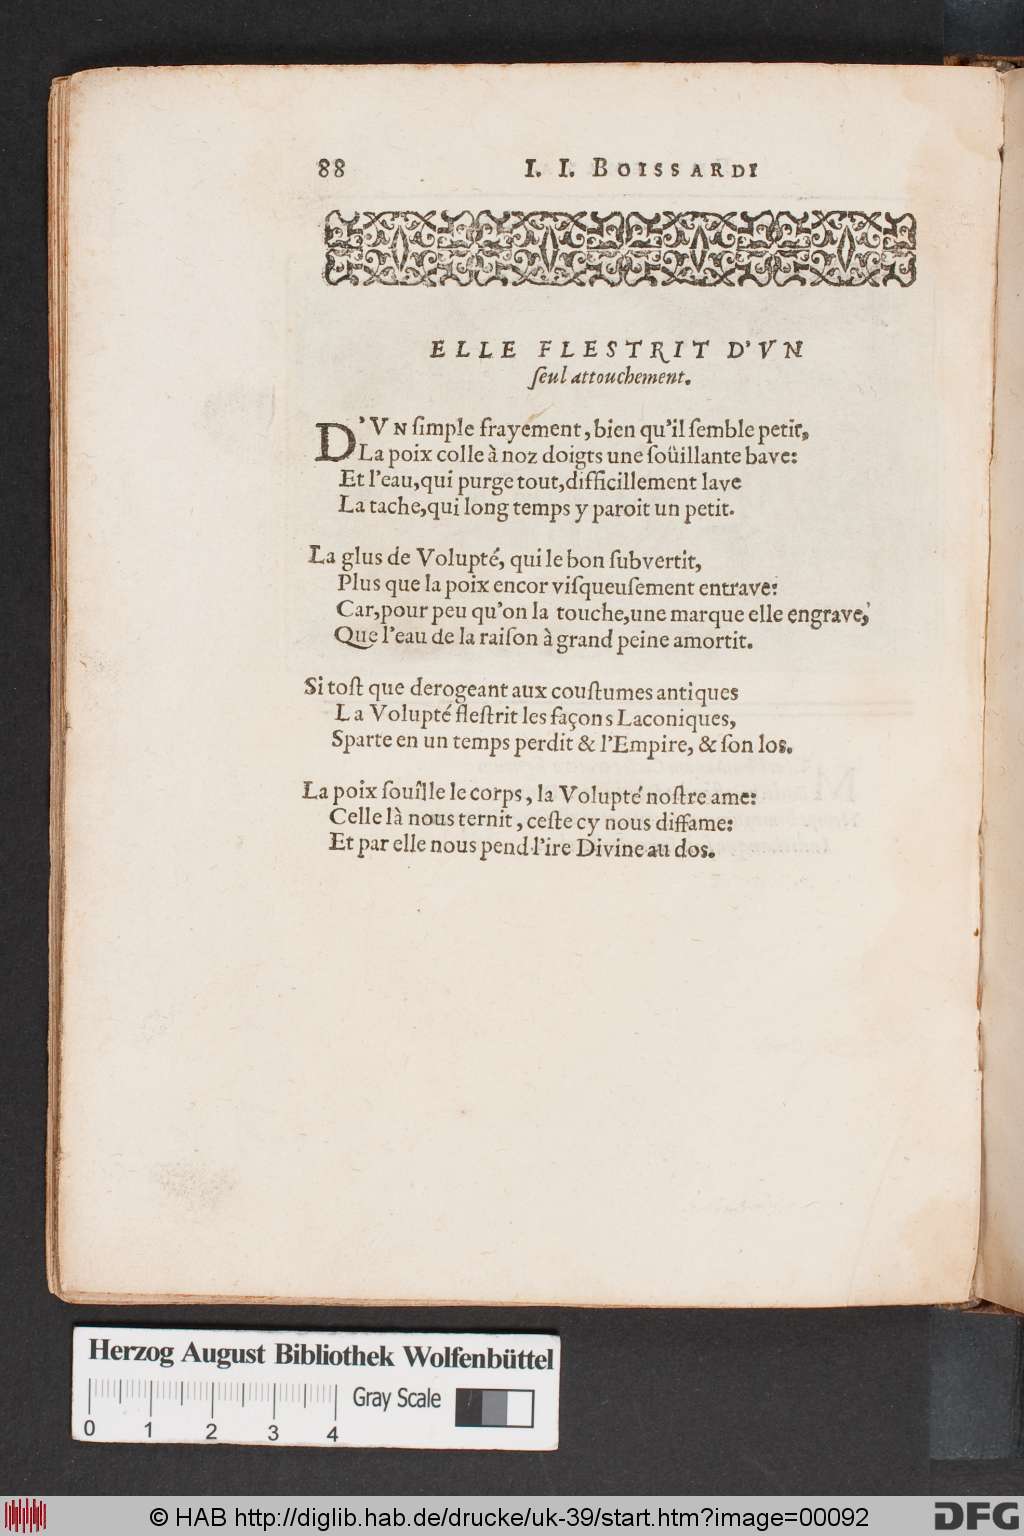 88 I. I. BOISSARDI
ELLE FLESTRIT D'VN
ſeul attouchement.
D'VN ſimple frayement, bien qu'il ſemble petit,
La poix colle à noz doigts une ſoüillante bave:
Et l'eau, qui purge tout, difficillement lave
La tache, qui long temps y paroit un petit.
La glus de Volupté, qui le bon ſubvertit,
Plus que la poix encor viſqueuſement entrave:
Car, pour peu qu'on la touche, une marque elle engrave,
Que l'eau de la raiſon à grand peine amortit.
Si toſt que derogeant aux couſtumes antiques
La Volupté fleſtrit les façons Laconiques,
Sparte en un temps perdit & l'Empire, & ſon los.
La poix ſouîlle le corps, la Volupté noſtre ame:
Celle là nous ternit, ceſte cy nous diffame:
Et par elle nous pend l'ire Divine au dos.
Herzog August Bibliothek Wolfenbüttel
Gray Scale
0 1 2 3 4
© HAB http://diglib.hab.de/drucke/uk-39/start.htm?image=00092
DFG